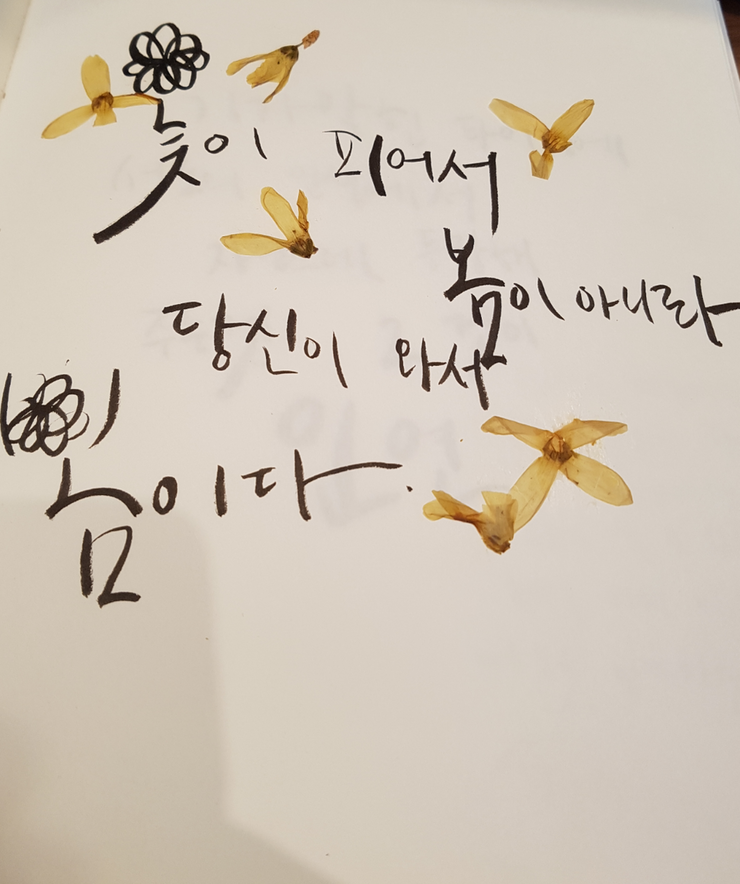 꽃이 피어서
봄이 아니라
당신이 와서
봄이다.